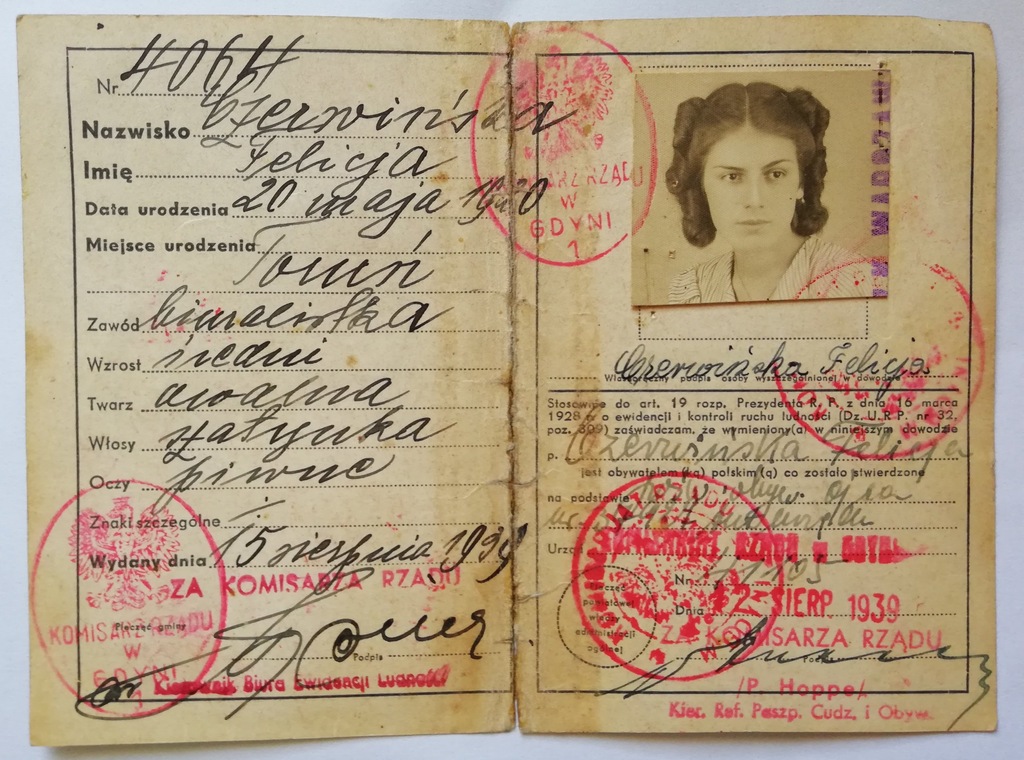 Nr 4064
Nazwisko Czerwińska
Imię Felicja
Data urodzenia 20 maja 1920
Miejsce urodzenia
Toruń
Zawód biuralistka
Wzrost średni
Twarz owalna
Włosy szatynka
Oczy piwne
Znaki szczególne
Wydany dnia 15 sierpnia 1939
ZA KOMISARZA RZĄDU
Pieczęć gminy
KOMISARZ RZĄDU
W
GDYNI
1
Podpis
Kierownik Biura Ewidencji Ludności
KOMISARZ RZĄDU
W
GDYNI
1
Czerwińska Felicja
Własnoręczny podpis osoby wyszczególnionej w dowodzie
Stosownie do art. 19 rozp. Prezydenta R. P. z dnia 16 marca
1928 r. o ewidencji i kontroli ruchu ludności (Dz. U. R P. nr 32,
poz. 309) zaświadczam, że wymieniony(a) w niniejszym dowodzie
p. Czerwińska Felicja
jest obywatelem(ką) polskim(ą) co zostało stwierdzone
na podstawie obyw. ojca
Urząd KOMISARIAT RZĄDU w GDYNI
Nr
Dnia 12 SIERP 1939
Pieczęć
powiatowej
władzy
administracji
ogólnej
ZA KOMISARZA RZĄDU
Podpis
/P. Hoppe/
Kier. Ref. Paszp. Cudz. i Obyw.